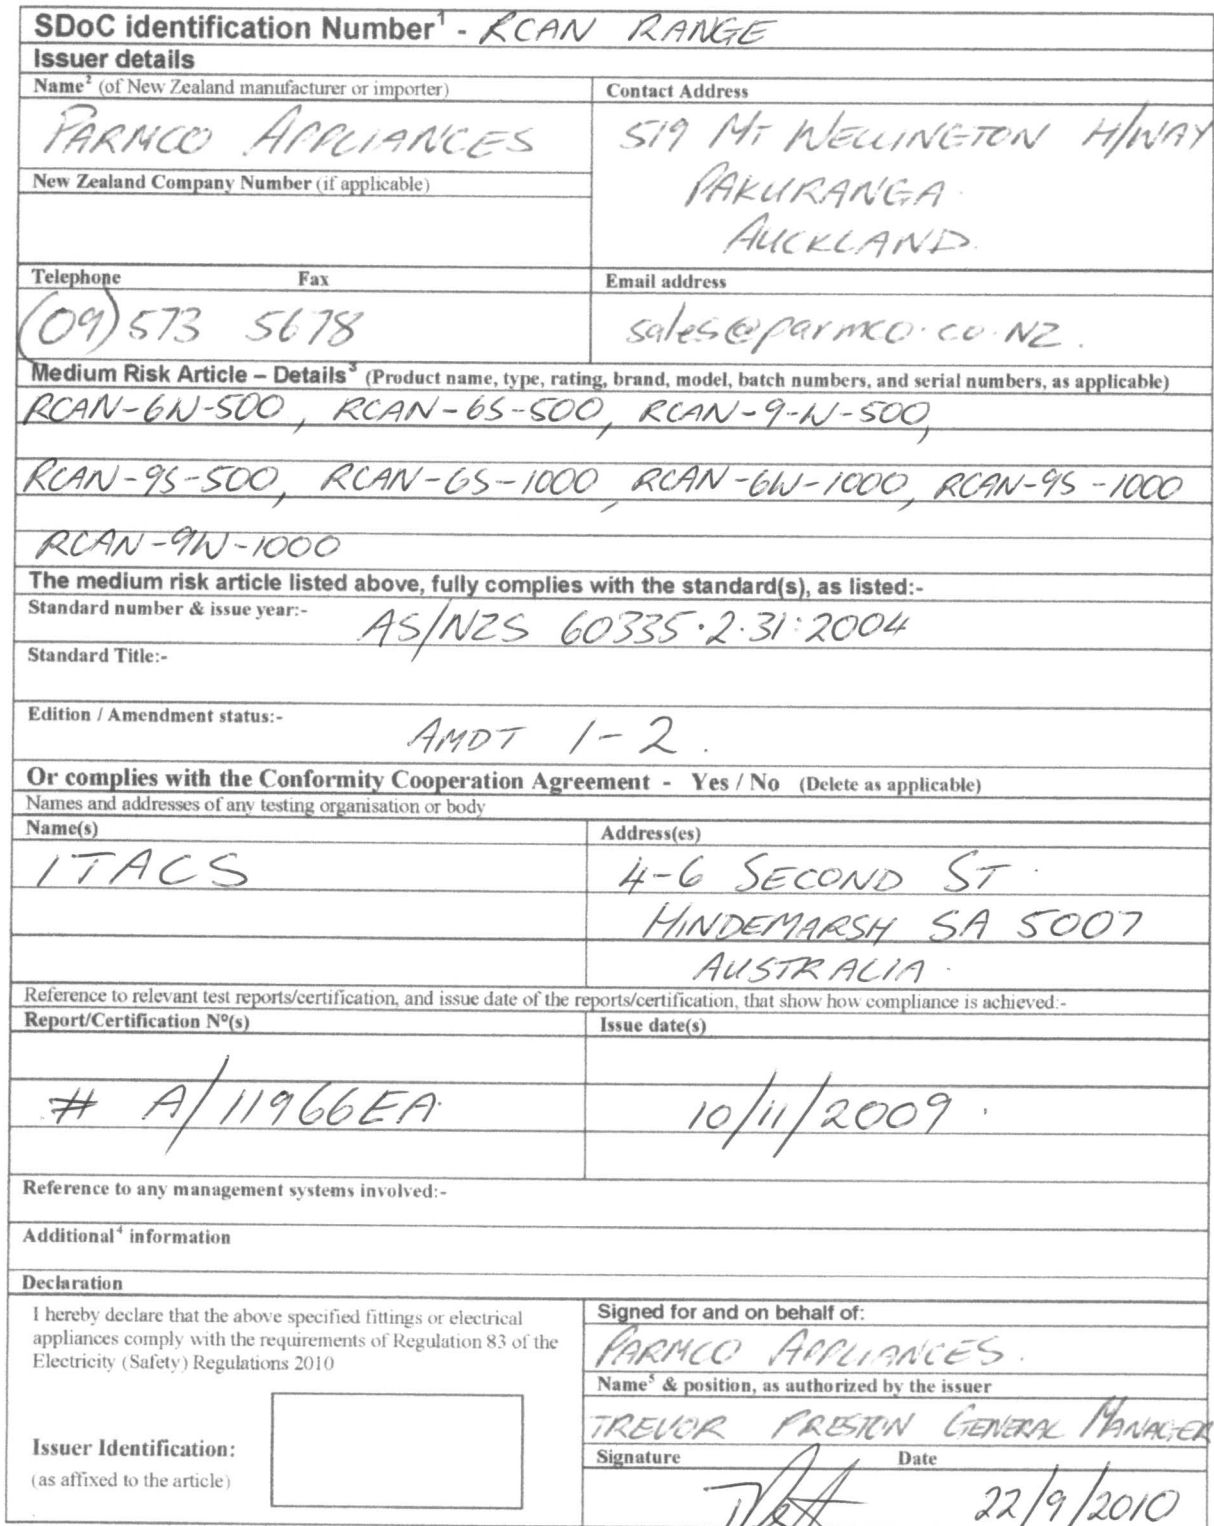 SDoC identification Number¹ - RCAN RANGE
Issuer details
Name² (of New Zealand manufacturer or importer)
PARMCO APPLIANCES
Contact Address
519 MT WELLINGTON H/WAY
PAKURANGA
AUCKLAND.
New Zealand Company Number (if applicable)
Telephone Fax
(09) 573 5678
Email address
sales@parmco.co.NZ.
Medium Risk Article – Details³ (Product name, type, rating, brand, model, batch numbers, and serial numbers, as applicable)
RCAN-6W-500, RCAN-6S-500, RCAN-9-W-500,
RCAN-9S-500, RCAN-6S-1000, RCAN-6W-1000, RCAN-9S-1000
RCAN-9W-1000
The medium risk article listed above, fully complies with the standard(s), as listed:-
Standard number & issue year:- AS/NZS 60335.2.31:2004
Standard Title:-
Edition / Amendment status:- AMDT 1-2.
Or complies with the Conformity Cooperation Agreement - Yes / No (Delete as applicable)
Names and addresses of any testing organisation or body
Name(s)
ITACS
Address(es)
4-6 SECOND ST.
HINDEMARSH SA 5007
AUSTRALIA.
Reference to relevant test reports/certification, and issue date of the reports/certification, that show how compliance is achieved:-
Report/Certification Nº(s)
# A/11966EA
Issue date(s)
10/11/2009.
Reference to any management systems involved:-
Additional⁴ information
Declaration
I hereby declare that the above specified fittings or electrical
appliances comply with the requirements of Regulation 83 of the
Electricity (Safety) Regulations 2010
Issuer Identification:
(as affixed to the article)
Signed for and on behalf of:
PARMCO APPLIANCES.
Name⁵ & position, as authorized by the issuer
TREVOR PRESTON GENERAL MANAGER
Signature Date
22/9/2010